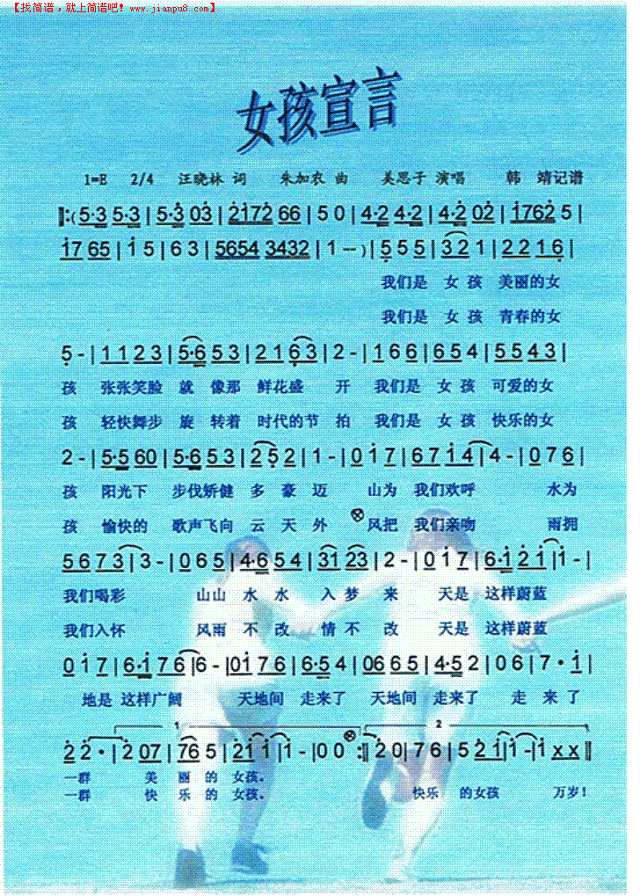 【找简谱，就上简谱吧！www.jianpu8.com】
女孩宣言
1=E 2/4 汪晓林 词 朱加农 曲 美思子 演唱 韩 靖记谱
‖:(5·3 5·3 | 5·3 03 | 2172 66 | 5 0 | 4·2 4·2 | 4·2 02 | 1762 5 |
1765 | 1 5 | 6 3 | 5654 3432 | 1 --) | 5 5 5 | 3 2 1 | 2 2 1 6 |
我们是 女 孩 美丽的女
我们是 女 孩 青春的女
5 - | 1 1 2 3 | 5·6 5 3 | 2 1 6 3 | 2 - | 1 6 6 | 6 5 4 | 5 5 4 3 |
孩 张张笑脸 就 像那 鲜花盛 开 我们是 女 孩 可爱的女
孩 轻快舞步 旋 转着 时代的节 拍 我们是 女 孩 快乐的女
2 - | 5·5 60 | 5·6 5 3 | 2 5 2 | 1 - | 0 1 7 | 6 7 1 4 | 4 - | 0 7 6 |
孩 阳光下 步伐矫健 多 豪 迈 山为 我们欢呼 水为
孩 愉快的 歌声飞向 云 天 外 风把 我们亲吻 雨拥
5 6 7 3 | 3 - | 0 6 5 | 4·6 5 4 | 31 23 | 2 - | 0 1 7 | 6·1 2 1 | 1 - |
我们喝彩 山山 水 水 入 梦 来 天是 这样蔚蓝
我们入怀 风雨 不 改 情 不 改 天是 这样蔚蓝
0 1 7 | 6·1 7 6 | 6 - | 01 7 6 | 6·5 4 | 06 6 5 | 4·5 2 | 0 6 | 7 · 1 |
地是 这样广阔 天地间 走来了 天地间 走来了 走 来 了
1 2
2 2· | 2 07 | 76 5 | 21 1 | 1 - | 0 0 :‖ 2 0 | 7 6 | 5 2 1 | 1 - | 1 x x ‖
一群 美 丽 的 女孩。
一群 快 乐 的 女孩。 快乐 的女孩 万岁！